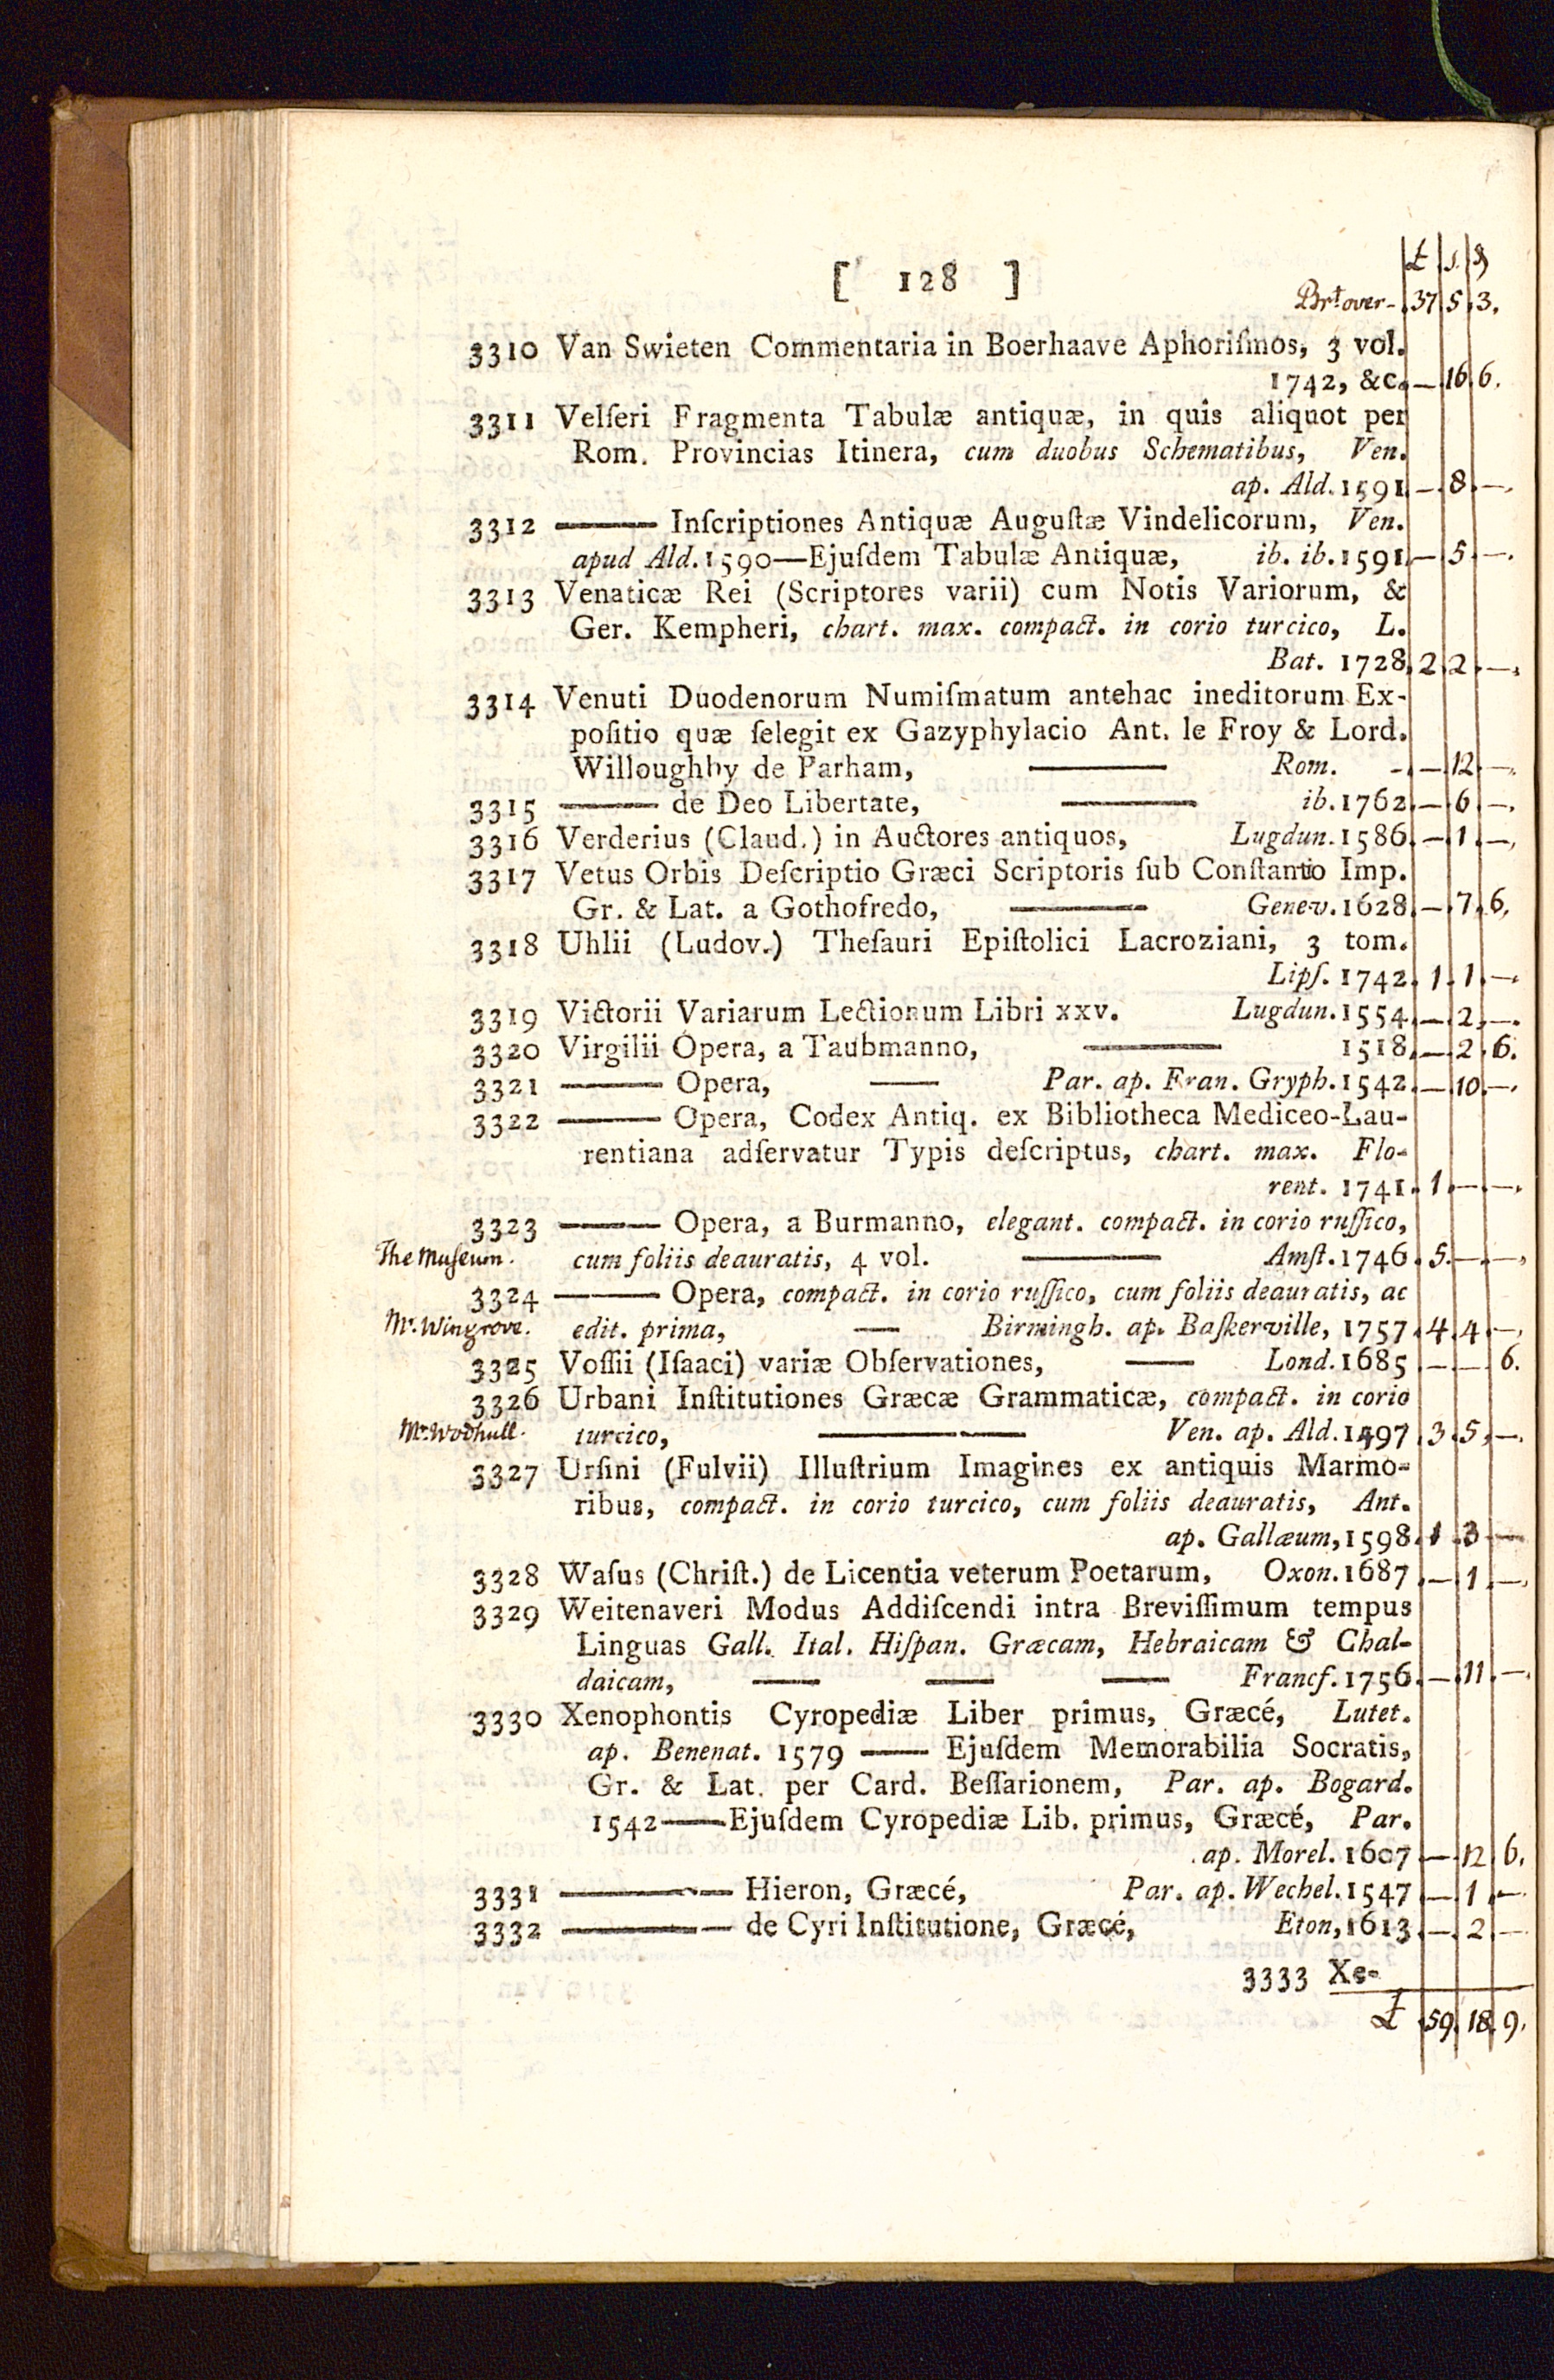 £ s. d
[ 128 ]
Brt over - 37 5 3.
3310 Van Swieten Commentaria in Boerhaave Aphoriſmos, 3 vol.
1742, &c. — 16 6.
3311 Velſeri Fragmenta Tabulæ antiquæ, in quis aliquot per
Rom. Provincias Itinera, cum duobus Schematibus, Ven.
ap. Ald. 1591 — 8 —.
3312 ——— Inſcriptiones Antiquæ Auguſtæ Vindelicorum, Ven.
apud Ald. 1590—Ejuſdem Tabulæ Antiquæ, ib. ib. 1591 — 5 —.
3313 Venaticæ Rei (Scriptores varii) cum Notis Variorum, &
Ger. Kempheri, chart. max. compact. in corio turcico, L.
Bat. 1728 2 2 —.
3314 Venuti Duodenorum Numiſmatum antehac ineditorum Ex-
poſitio quæ ſelegit ex Gazyphylacio Ant. le Froy & Lord.
Willoughby de Parham, ——— Rom. - — 12 —.
3315 ——— de Deo Libertate, ——— ib. 1762 — 6 —.
3316 Verderius (Claud.) in Auctores antiquos, Lugdun. 1586 — 1 —.
3317 Vetus Orbis Deſcriptio Græci Scriptoris ſub Conſtantio Imp.
Gr. & Lat. a Gothofredo, ——— Genev. 1628 — 7 6.
3318 Uhlii (Ludov.) Theſauri Epiſtolici Lacroziani, 3 tom.
Lipſ. 1742 1 1 —.
3319 Victorii Variarum Lectionum Libri xxv. Lugdun. 1554 — 2 —.
3320 Virgilii Opera, a Taubmanno, ——— 1518 — 2 6.
3321 ——— Opera, —— Par. ap. Fran. Gryph. 1542 — 10 —.
3322 ——— Opera, Codex Antiq. ex Bibliotheca Mediceo-Lau-
rentiana adſervatur Typis deſcriptus, chart. max. Flo-
rent. 1741 1 — —.
3323 ——— Opera, a Burmanno, elegant. compact. in corio ruſſico,
The Muſeum. cum foliis deauratis, 4 vol. ——— Amſt. 1746 5 — —.
3324 ——— Opera, compact. in corio ruſſico, cum foliis deauratis, ac
Mr. Wingrove. edit. prima, —— Birmingh. ap. Baſkerville, 1757 4 4 —.
3325 Voſſii (Iſaaci) variæ Obſervationes, —— Lond. 1685 — — 6.
3326 Urbani Inſtitutiones Græcæ Grammaticæ, compact. in corio
Mr. Wodhull. turcico, ——— Ven. ap. Ald. 1497 3 5 —.
3327 Urſini (Fulvii) Illuſtrium Imagines ex antiquis Marmo-
ribus, compact. in corio turcico, cum foliis deauratis, Ant.
ap. Gallæum, 1598 1 3 —
3328 Waſus (Chriſt.) de Licentia veterum Poetarum, Oxon. 1687 — 1 —.
3329 Weitenaveri Modus Addiſcendi intra Breviſſimum tempus
Linguas Gall. Ital. Hiſpan. Græcam, Hebraicam & Chal-
daicam, —— —— —— Francf. 1756 — 11 —.
3330 Xenophontis Cyropediæ Liber primus, Græcé, Lutet.
ap. Benenat. 1579 —— Ejuſdem Memorabilia Socratis,
Gr. & Lat. per Card. Beſſarionem, Par. ap. Bogard.
1542——Ejuſdem Cyropediæ Lib. primus, Græcé, Par.
ap. Morel. 1607 — 12 6.
3331 ——— Hieron, Græcé, Par. ap. Wechel. 1547 — 1 —.
3332 ——— de Cyri Inſtitutione, Græcé, Eton, 1613 — 2 —
3333 Xe-
£ 59 18 9.